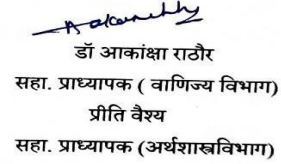 डॉ आकांक्षा राठौर
सहा. प्राध्यापक ( वाणिज्य विभाग)
प्रीति वैश्य
सहा. प्राध्यापक (अर्थशास्त्रविभाग)